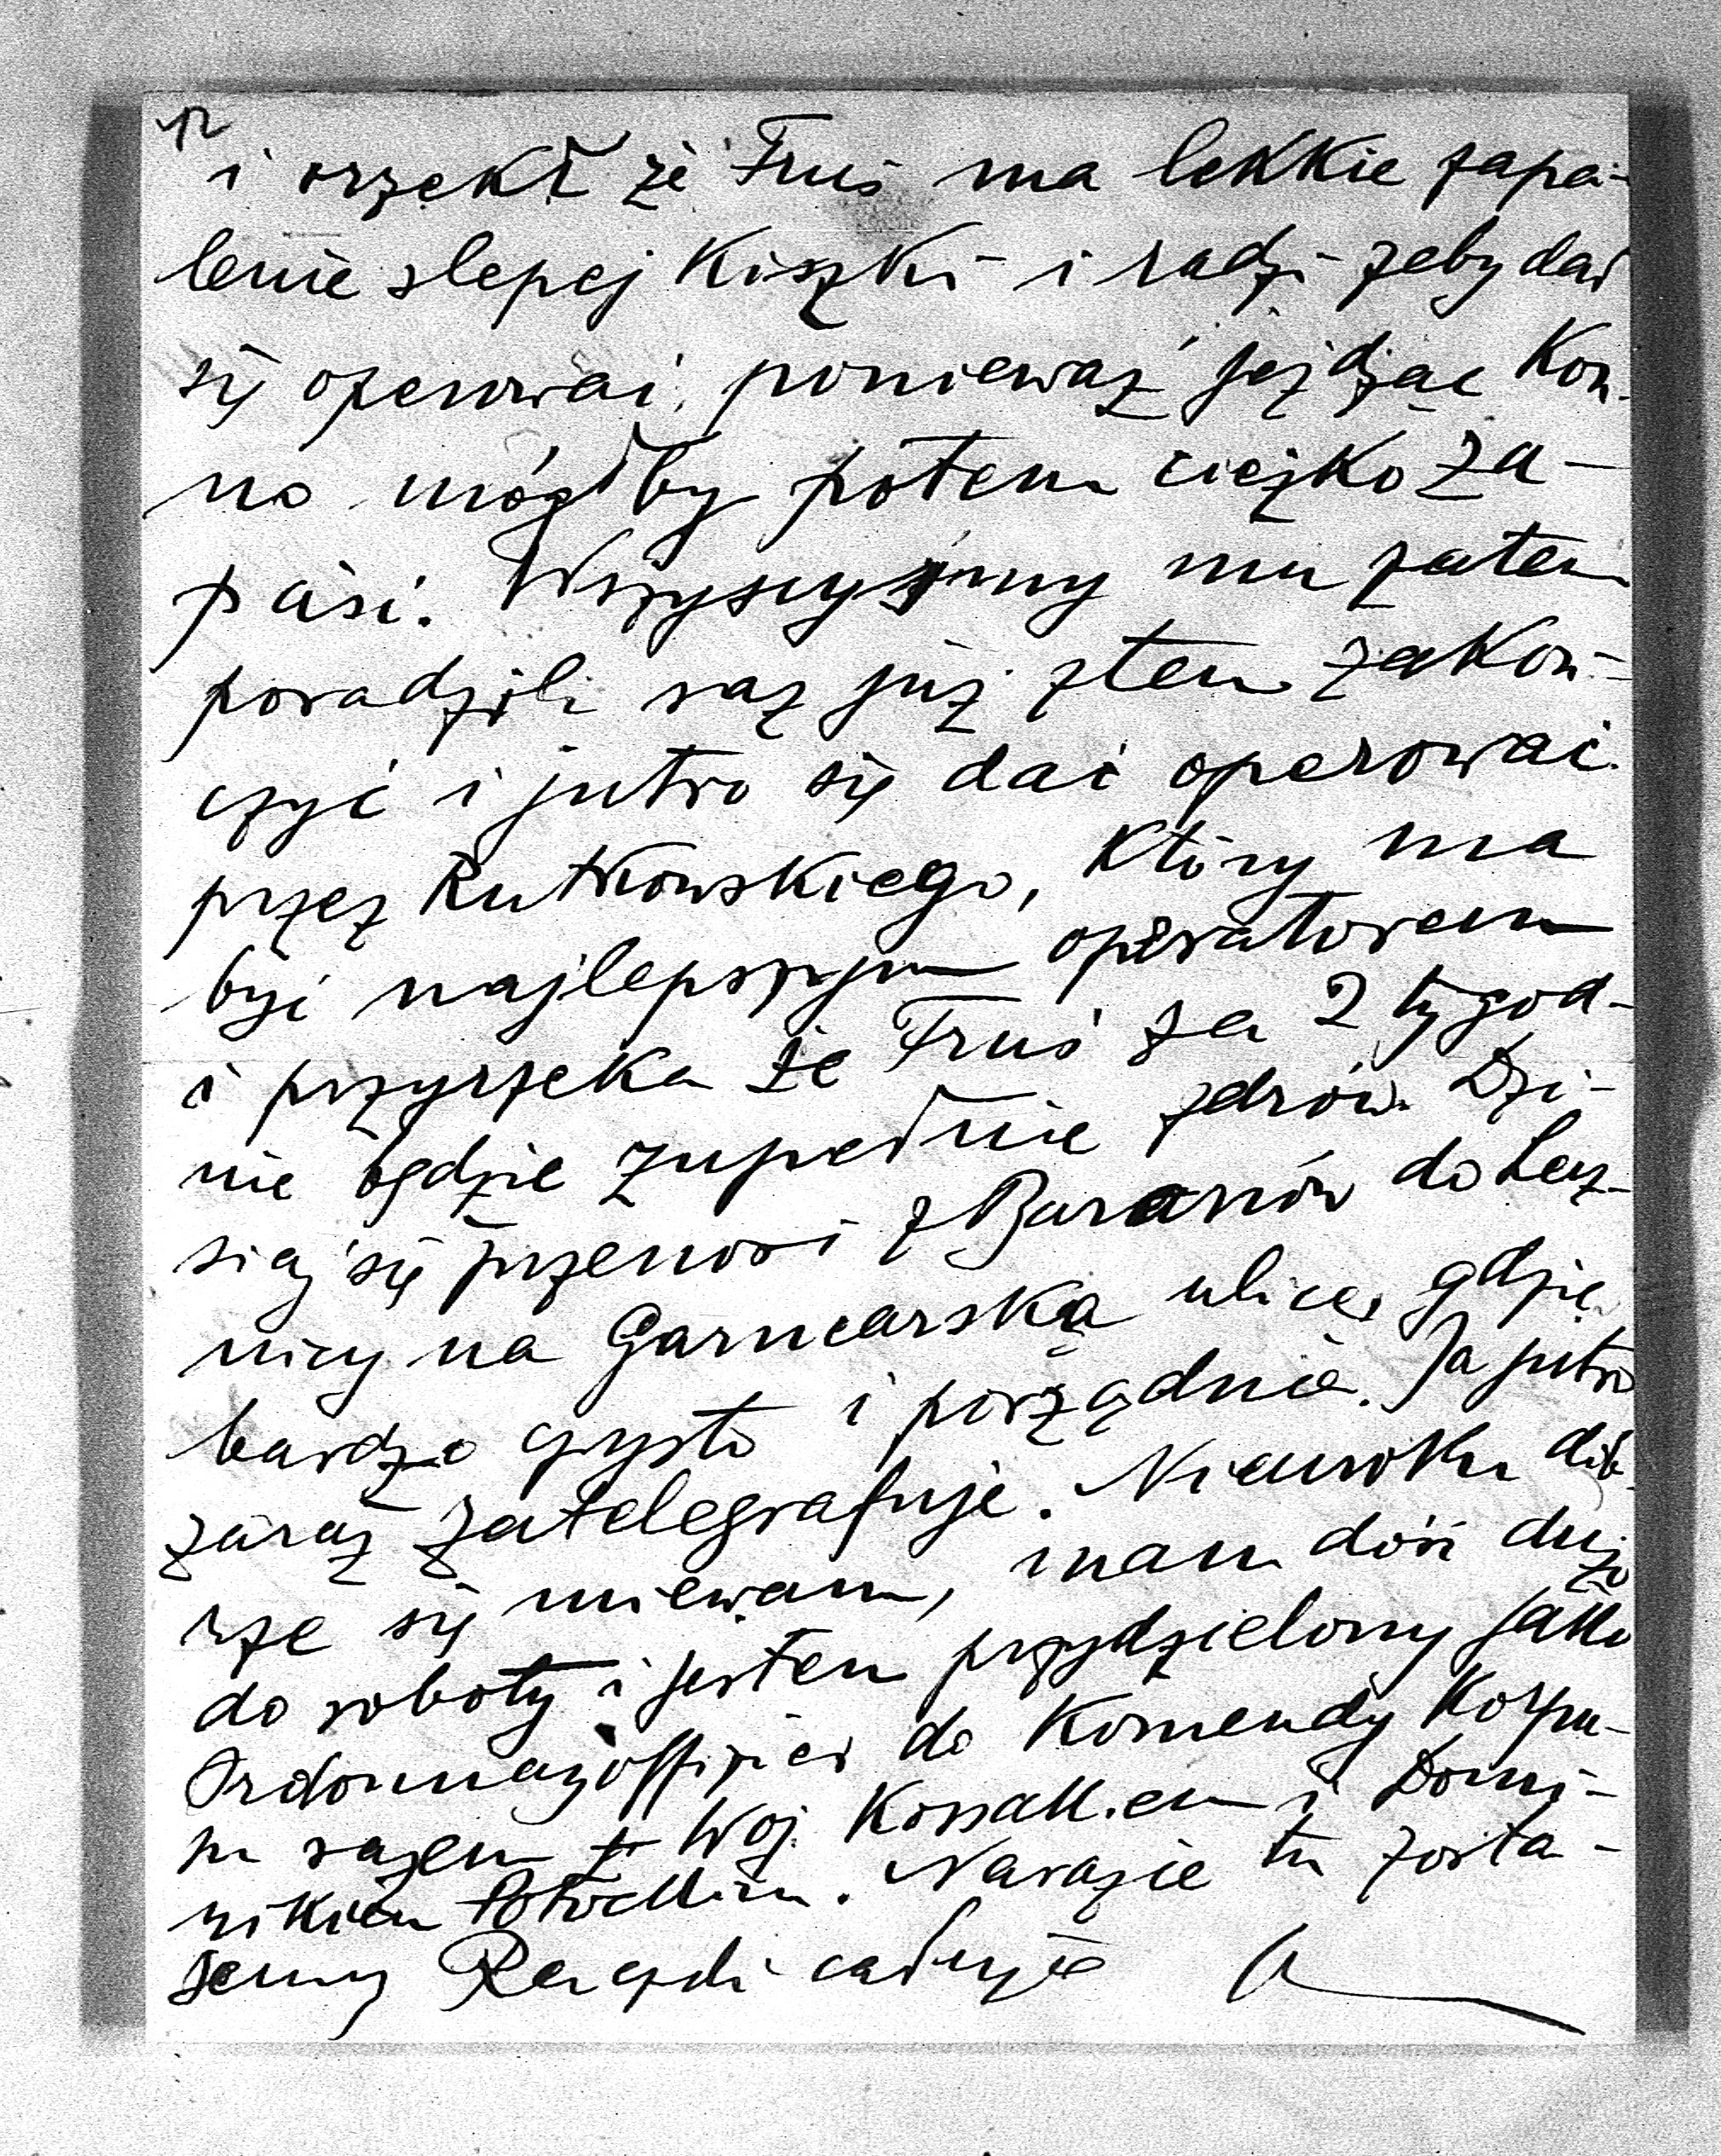 12
i orzekł że Fruś ma lekkie zapa-
lenie slepej Kiszki i radzi zeby dał
się operować, ponieważ jeżdżąc Kon-
no mógłby potem ciężko za-
paść. Wszyscyśmy mu zatem
poradzili raz już ztem zakoń-
czyć i jutro się dać operować
przez Rutkowskiego, Który ma
być najlepszym operatorem
i przyrzeka że Fruś za 2 tygod-
nie będzie zupełnie zdrów. Dzi-
siaj się przenosi z Baranów do Lecz-
nicy na Garncarską ulicę, gdzie
bardzo czysto i porządnie. Ja jutro
zaraz zatelegrafuję. Nieuroku dob-
rze się miewam, mam dość dużo
do roboty i jestem przydzielony jako
Ordonnazoffizier do Komendy Korpu-
su razem z Woj. Kossakiem i Domi-
nikiem Potockim. Narazie tu zosta-
jemy Rączki całuję